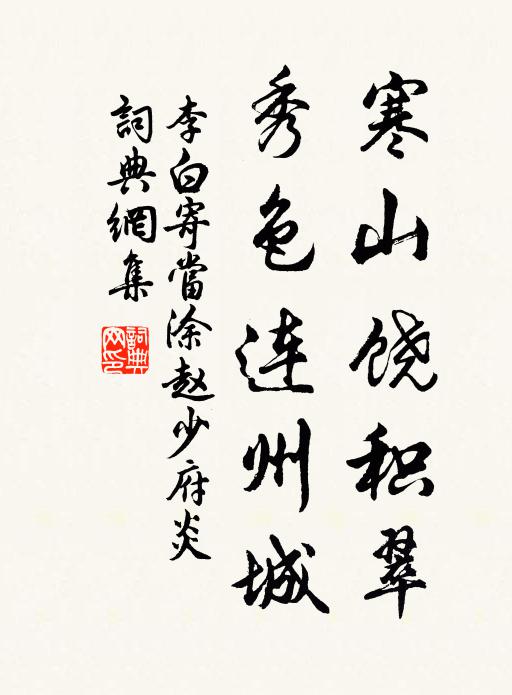 寒山饶积翠
秀色连州城
李白寄當涂赵少府炎
詞典網集
詞典网印